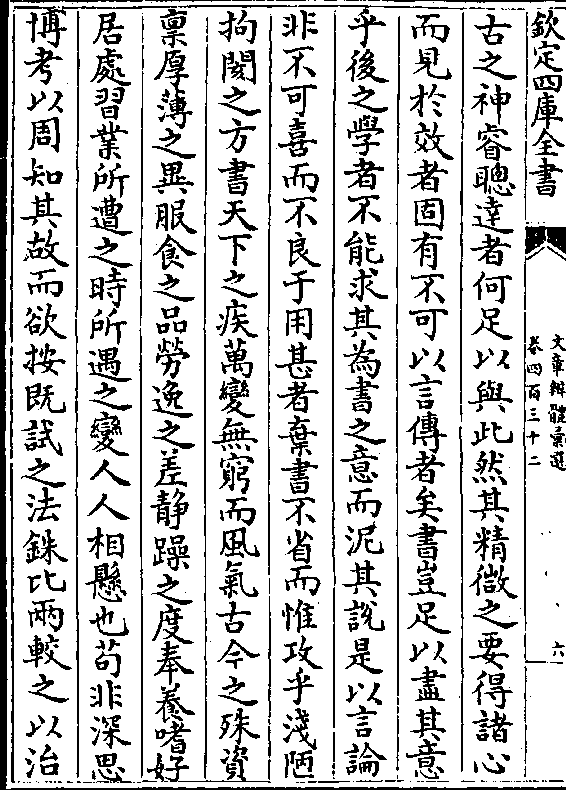 欽定四庫全書
文章辨體彙選
卷四百三十二
六
古之神睿聰達者何足以與此然其精微之要得諸心
而見於效者固有不可以言傳者矣書豈足以盡其意
乎後之學者不能求其為書之意而泥其說是以言論
非不可喜而不良于用甚者棄書不省而惟攻乎淺陋
拘閡之方書天下之疾萬變無窮而風氣古今之殊資
稟厚薄之異服食之品勞逸之差静躁之度奉養嗜好
居處習業所遭之時所遇之變人人相懸也苟非深思
博考以周知其故而欲按既試之法銖比兩較之以治